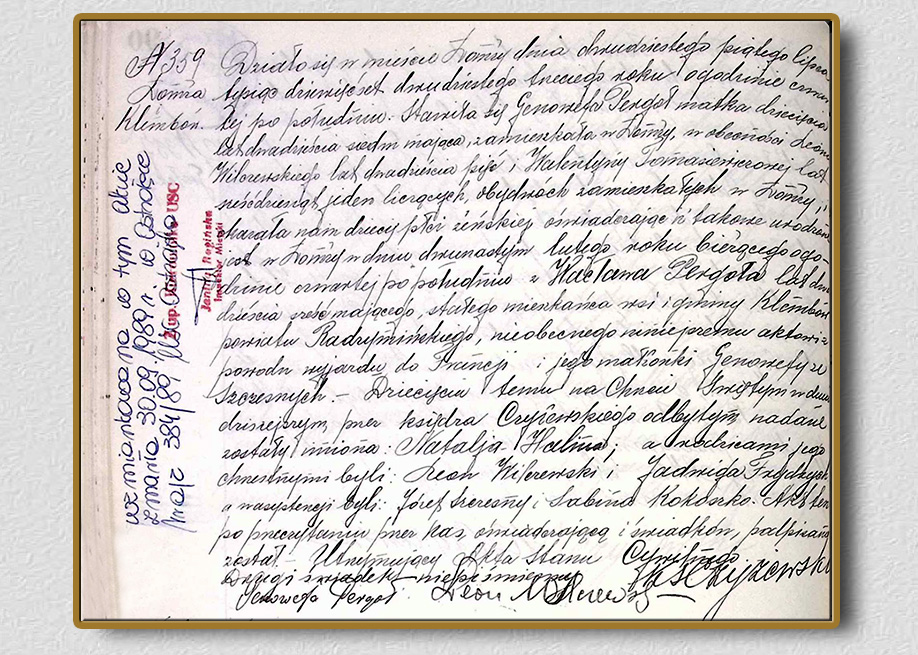 № 359
Łomża
Klembów.
Działo się w mieście Łomży dnia dwudziestego piątego lipca
tysiąc dziewięćset dwudziestego trzeciego roku o godzinie czwar-
tej po południu. Stawiła się Genowefa Pergoł matka dziecięcia
lat dwadzieścia siedm mająca, zamieszkała w Łomży, w obecności Leona
Wiszrewskiego lat dwadzieścia pięć i Walentyny Tomaszewiczowej lat
sześćdziesiąt jeden liczących, obydwoch zamieszkałych w Łomży, i
okazała nam dziecię płci żeńskiej oświadczając iż takowe urodzone
jest w Łomży w dniu dwunastym lutego roku bieżącego o go-
dzinie czwartej po południu z Wacława Pergoła lat dwa
dzieścia sześć mającego, stałego mieszkańca wsi i gminy Klembów
powiatu Radzymińskiego, nieobecnego niniejszemu aktowi z
powodu wyjazdu do Francji i jego małżonki Genowefy z
Szczesnych. – Dziecięciu temu na Chrzcie Świętym w dniu
dzisiejszym przez księdza Czyżewskiego odbytym nadane
zostały imiona: Natalja Halina; a rodzicami jego
chrzestnymi byli: Leon i Jadwiga
a w asystencji byli: Józef Szczesny i Sabina Kokoszko. Akt ten
po przeczytaniu przez nas oświadczającej i świadków, podpisany
został. – Utrzymujący Akta Stanu Cywilnego
Drugi świadek niepiśmienny Czyżewski
Genowefa Pergoł Leon
wzmiankowana w tym akcie
zmarła 30.09.1989 r. w Ostrołęce
384/89
USC
Janina Rogińska
Inspektor Miejski